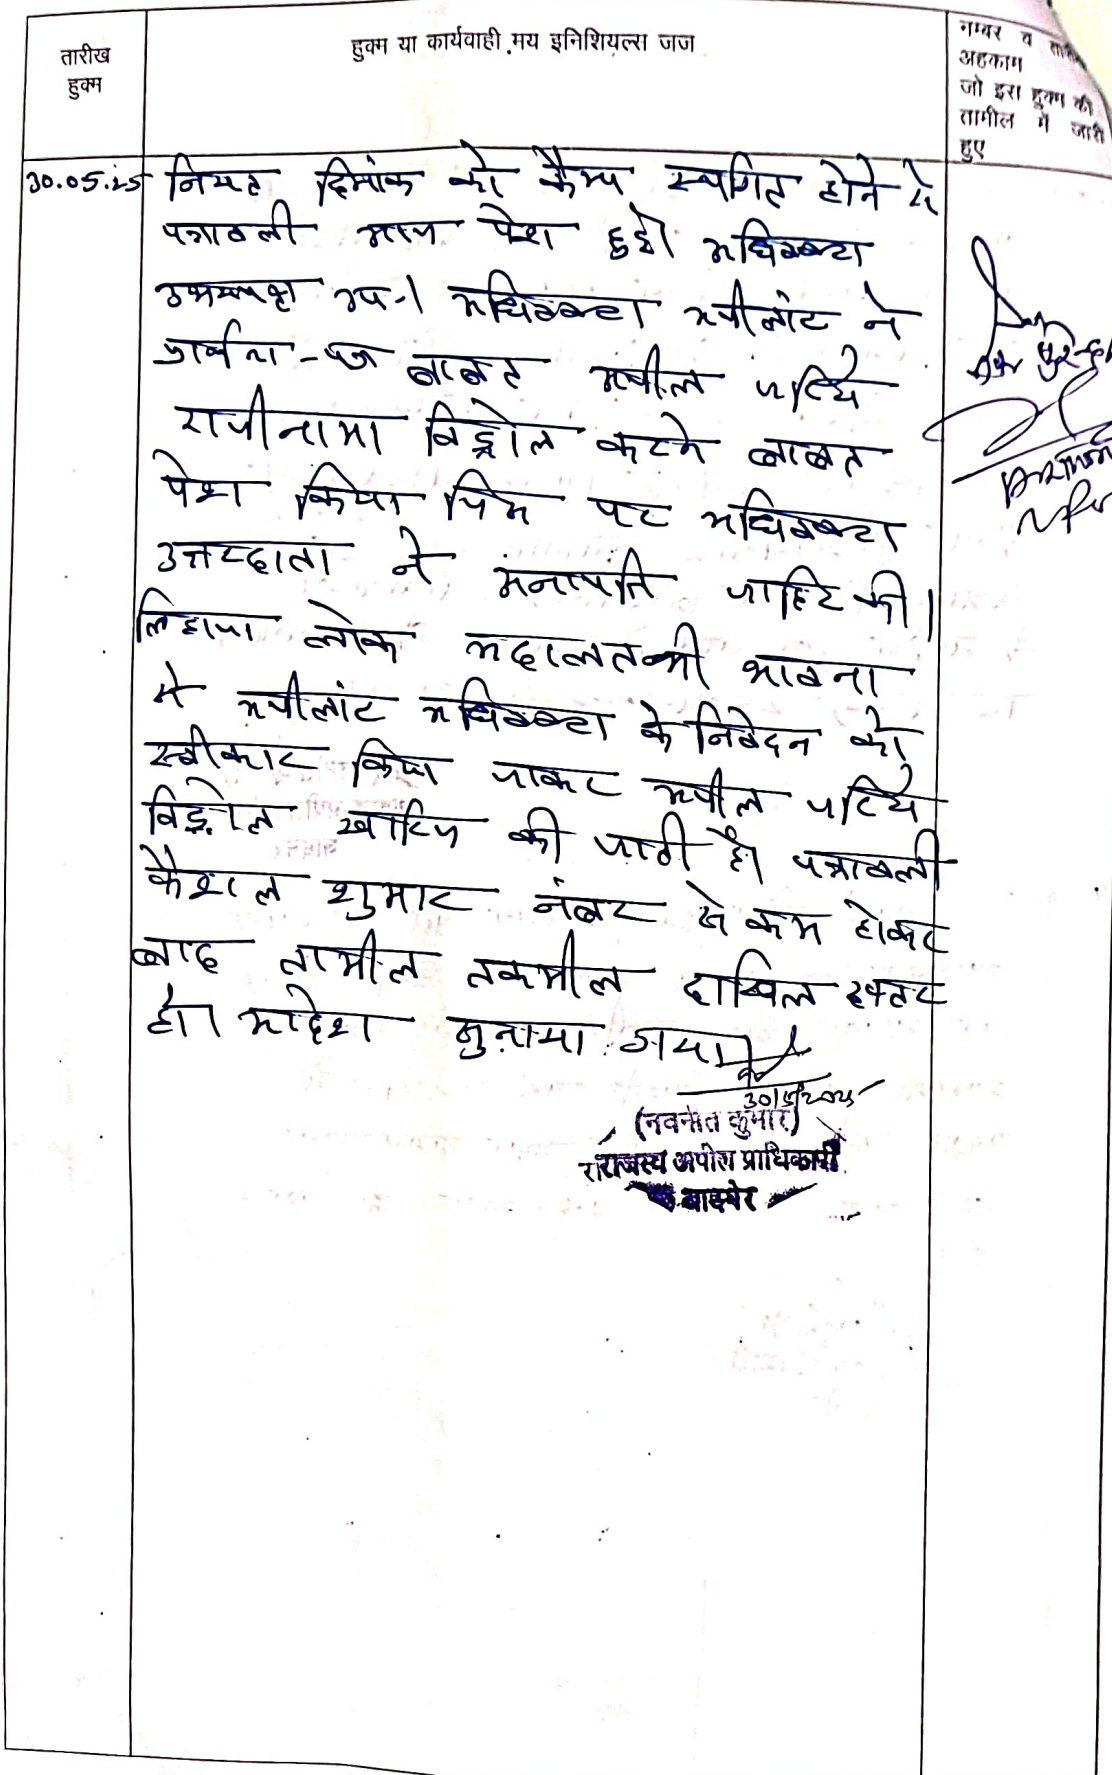 तारीख
हुक्म
हुक्म या कार्यवाही मय इनिशियल्स जज
नम्बर व
अहकाम
जो इस हुक्म की
तामील में जारी
हुए
30.05.25
नियत दिनांक को कैम्प स्थगित होने से
पत्रावली आज पेश हुई। अधिवक्ता
उभयपक्ष उप.। अधिवक्ता अपीलांट ने
प्रार्थना-पत्र बाबत अपील जरिये
राजीनामा विड्रोल करने बाबत
पेश किया जिस पर अधिवक्ता
उत्तरदाता ने अनापत्ति जाहिर की।
लिहाजा लोक अदालत की भावना
में अपीलांट अधिवक्ता के निवेदन को
स्वीकार किया जाकर अपील जरिये
विड्रोल खारिज की जाती है। पत्रावली
फैशल शुमार नंबर से कम होकर
बाद तामील तकमील दाखिल दफ्तर
हो। आदेश सुनाया गया।
30/5/2025
(नवनीत कुमार)
राजस्व अपील प्राधिकारी
बाड़मेर